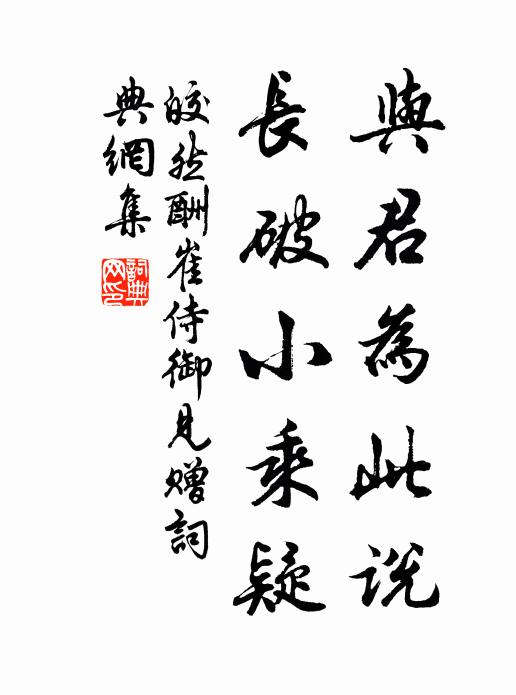 與君為此說
長破小乘疑
皎然酬崔侍御見贈詞
典網集
詞典
网印